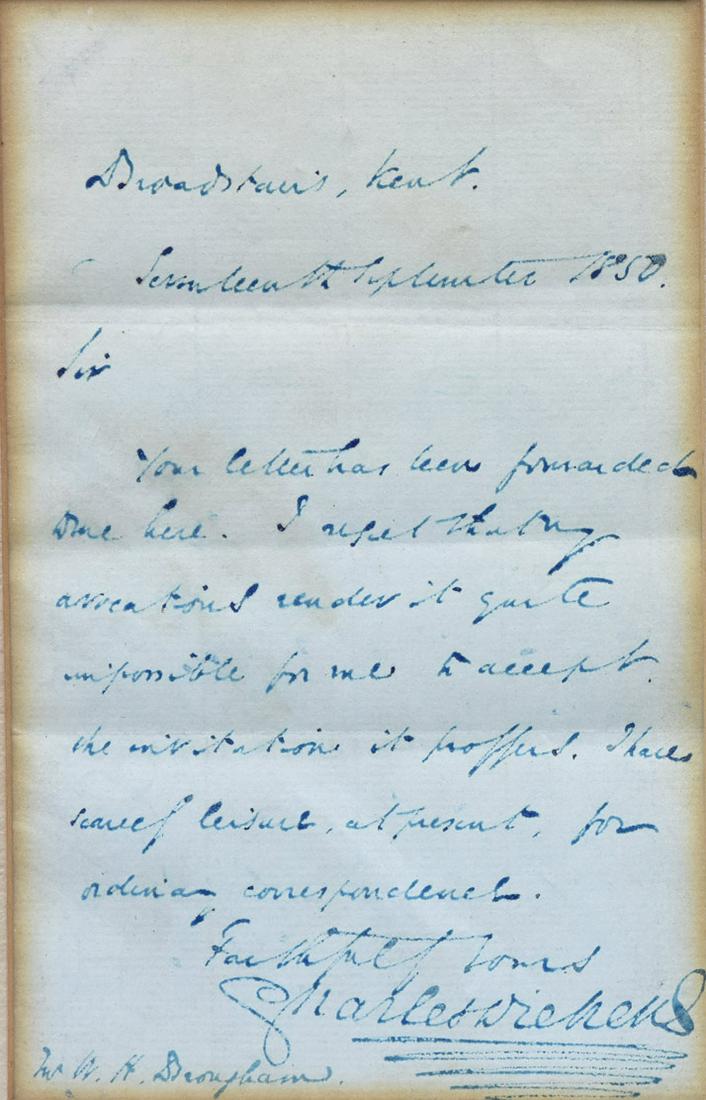 Broadstairs, Kent.
Seventeenth September 1850.
Sir
Your letter has been forwarded
to me here. I regret that my
avocations render it quite
impossible for me to accept
the invitation it proffers. I have
scarcely leisure, at present, for
ordinary correspondence.
Faithfully Yours
Charles Dickens
W. H. Brougham.